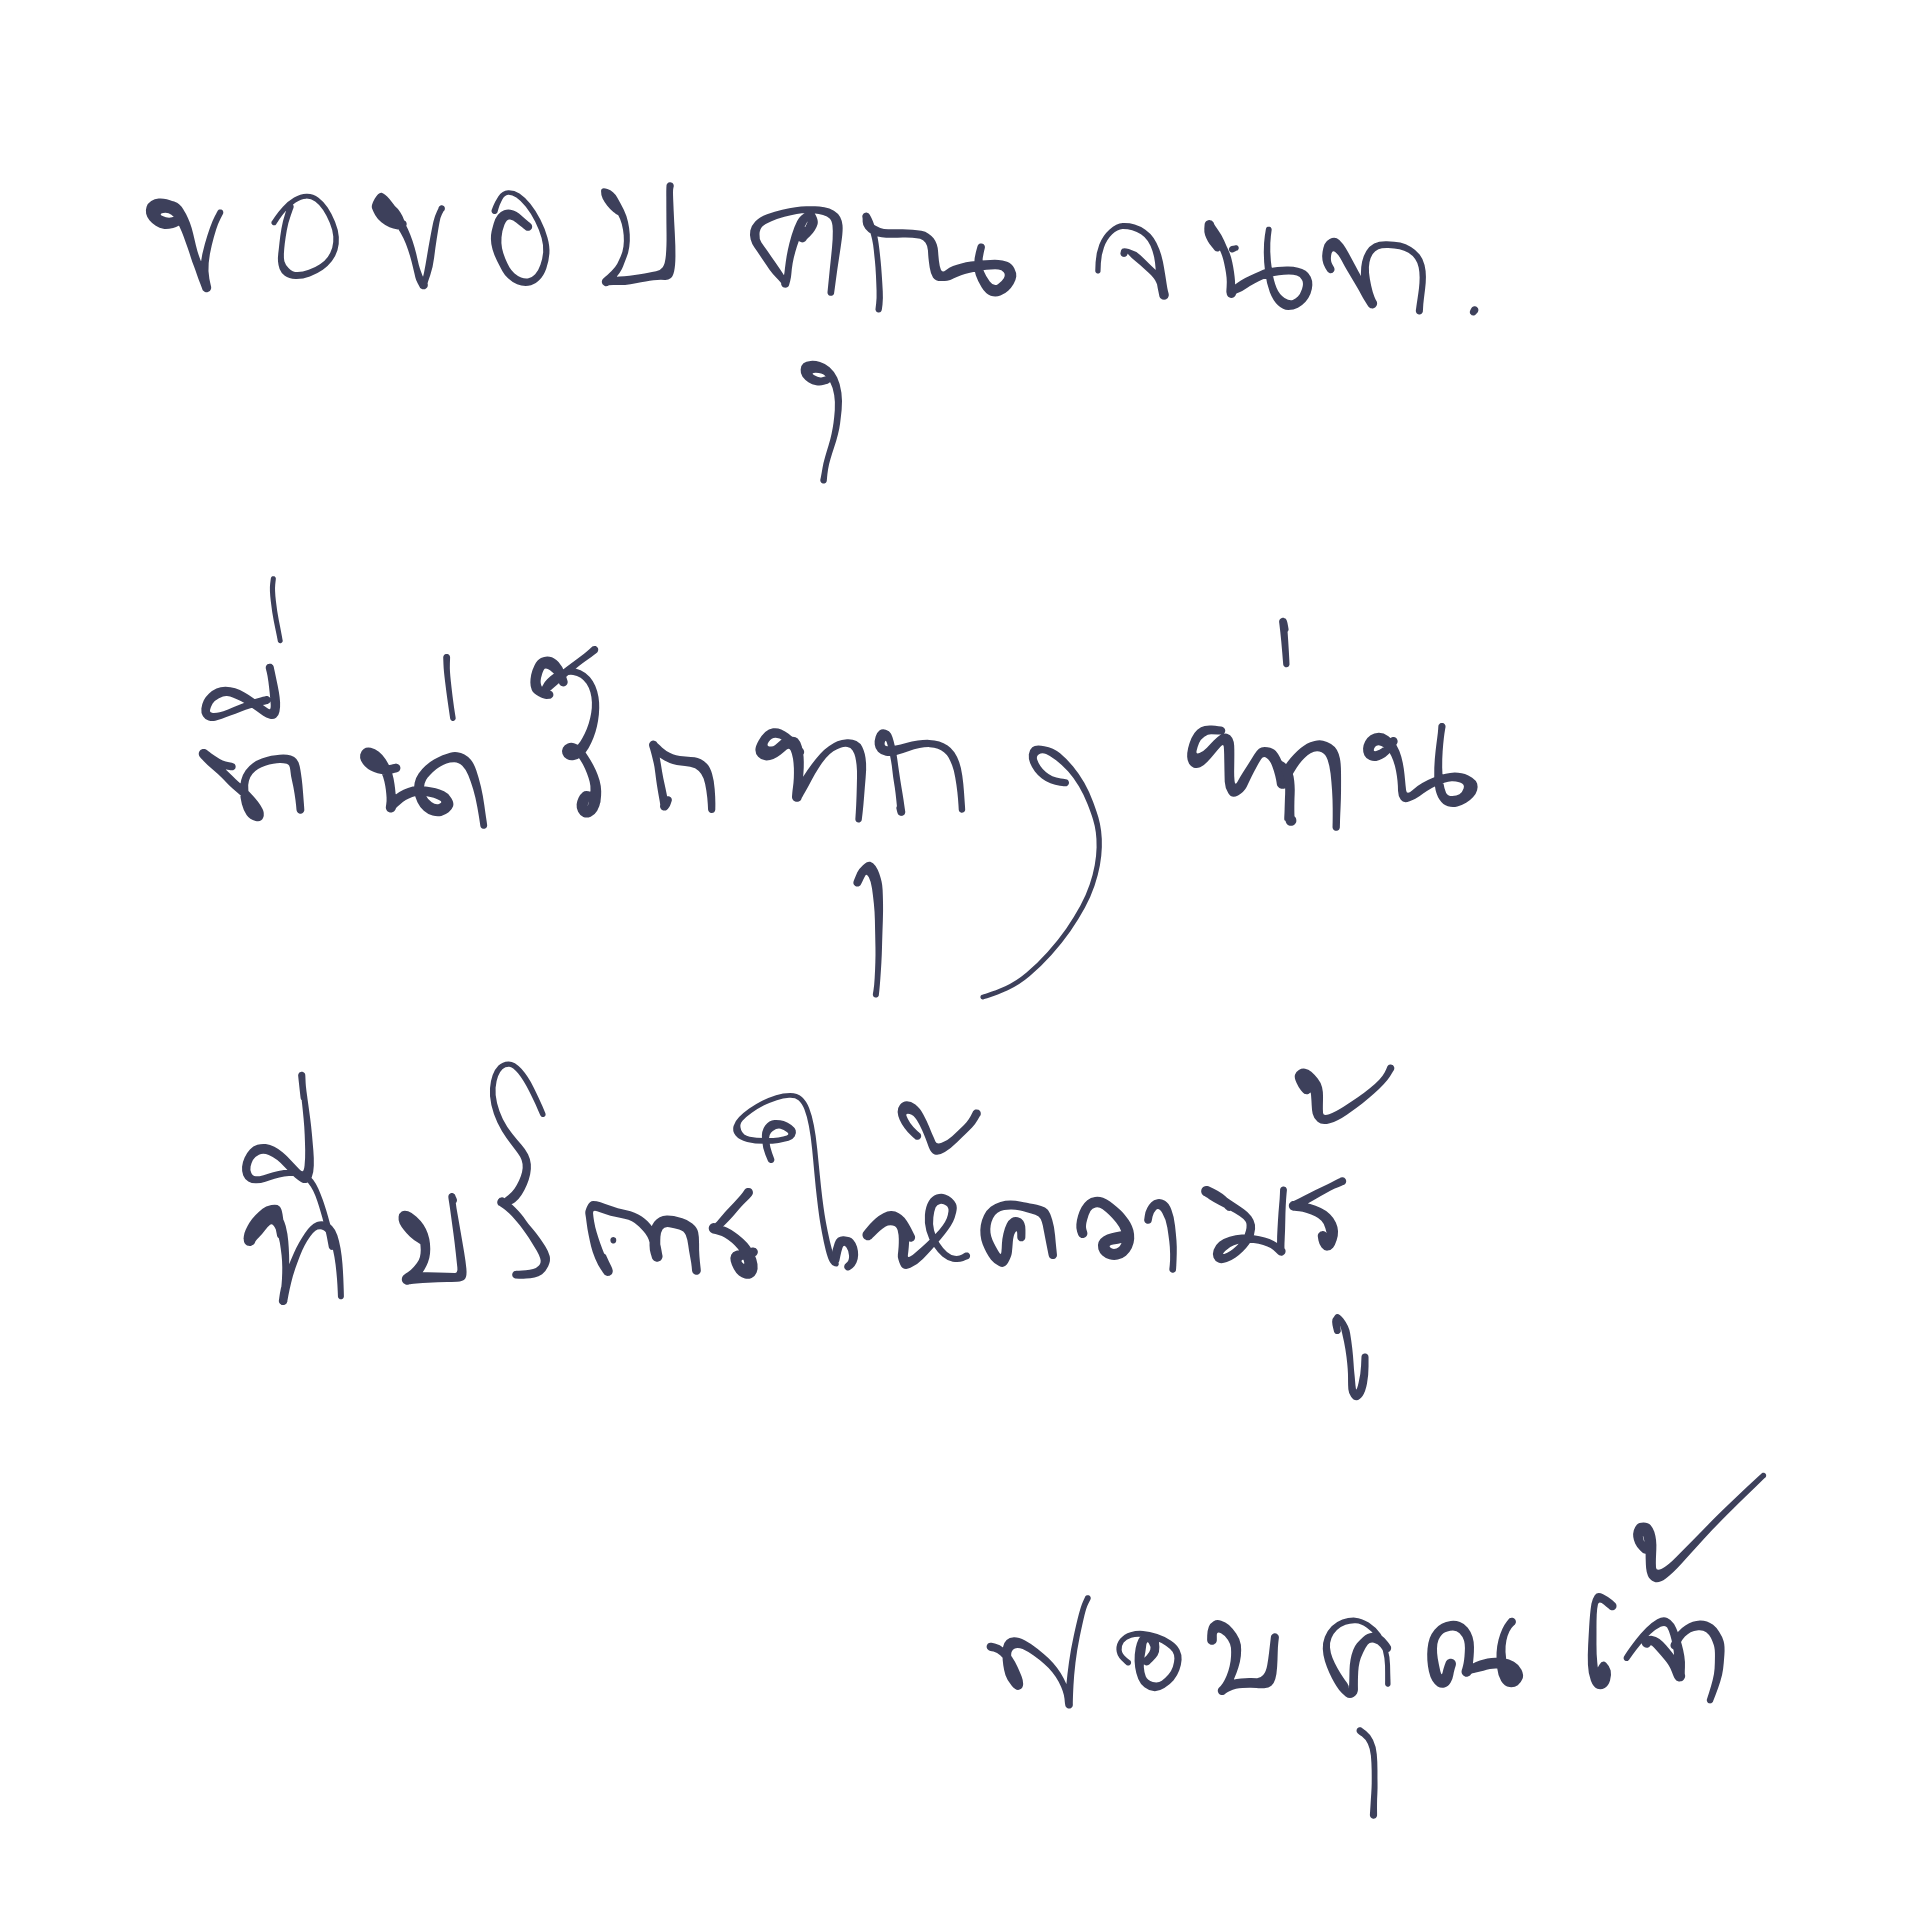 ขอขอบคุณ
ที่น่ารักทุกๆ ท่าน
ที่ ให้ความรู้
ขอบคุณเจ้า